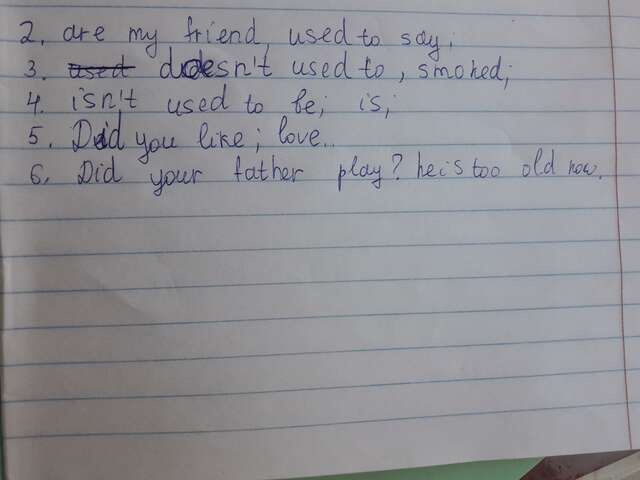 2. are my friend, used to say;
3. used doesn't used to, smoked;
4. isn't used to be; is;
5. Did you like; love..
6. Did your father play? he is too old now.